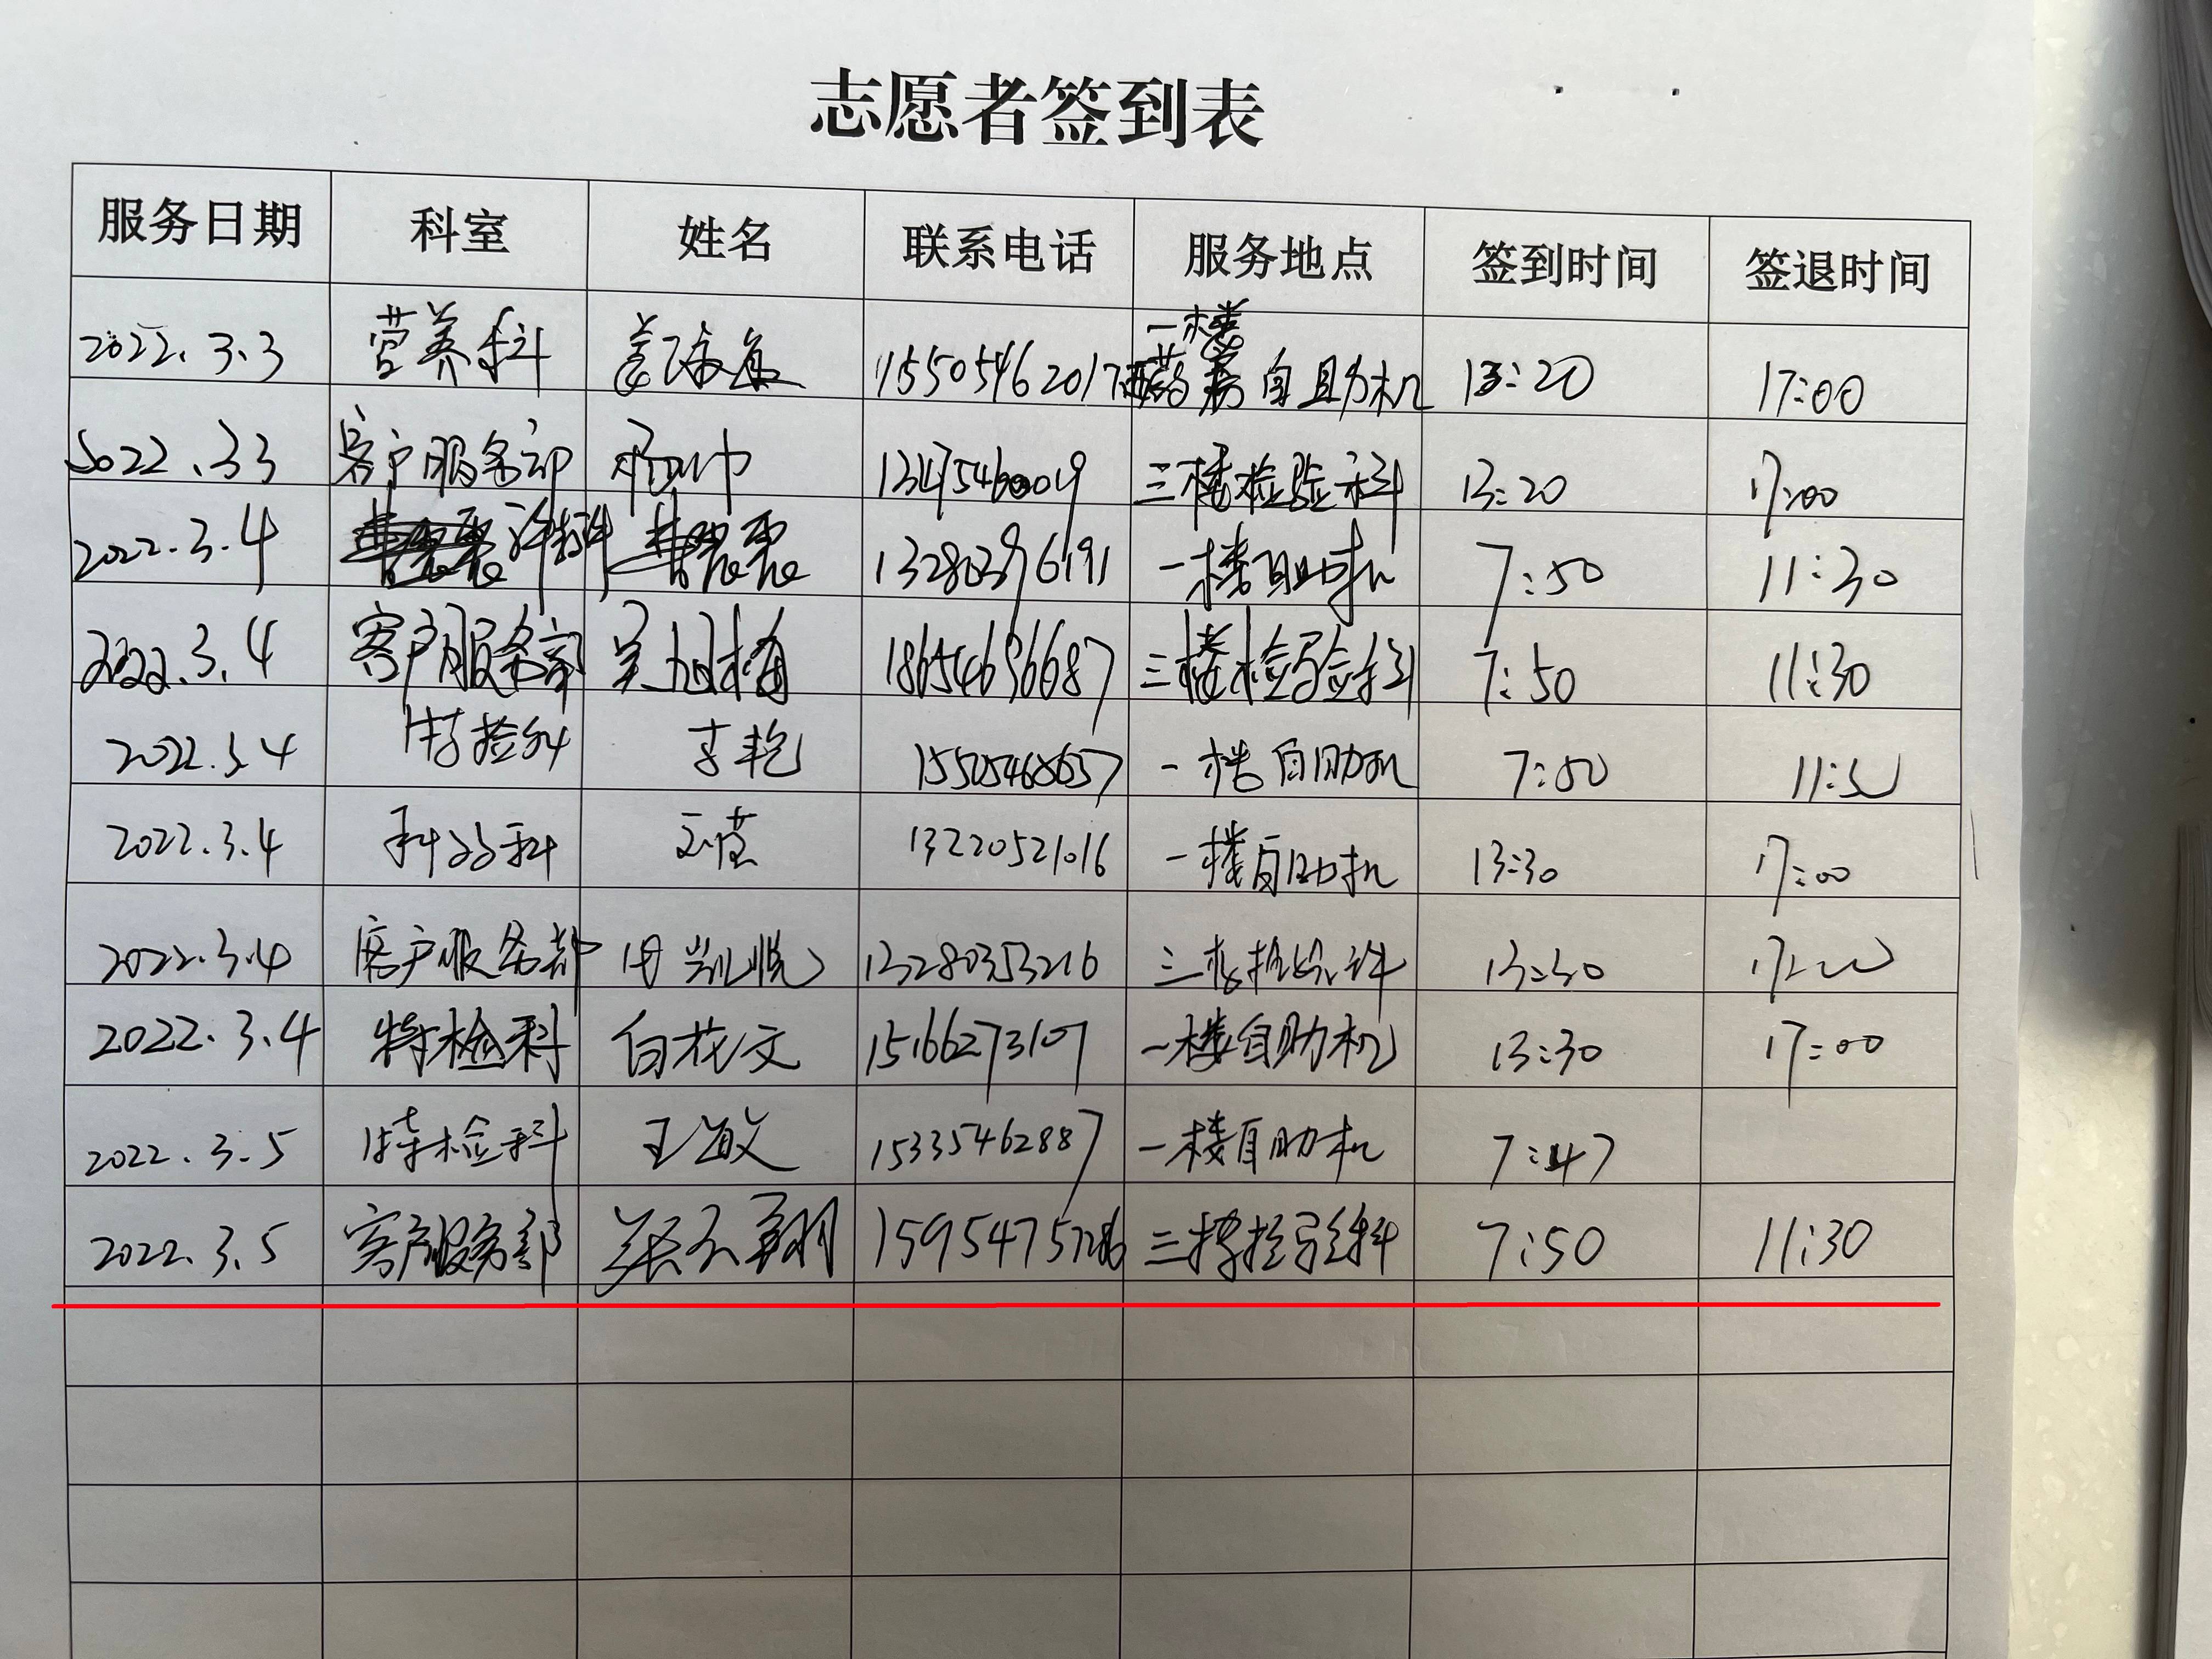 志愿者签到表
服务日期 科室 姓名 联系电话 服务地点 签到时间 签退时间
一楼
2022.3.3 营养科 15505462017 自助机 13:20 17:00
2022.3.3 客户服务部 13475460009 三楼检验科 13:20 17:00
2022.3.4 13280396191 一楼自助机 7:50 11:30
2022.3.4 客户服务部 18654696687 三楼检验科 7:50 11:30
2022.3.4 特检科 李艳 一楼自助机 7:50 11:30
2022.3.4 13220521016 一楼自助机 13:30 17:00
2022.3.4 客户服务部 田凯悦 13280353216 三楼检验科 13:30 17:00
2022.3.4 特检科 白花文 15166273107 一楼自助机 13:30 17:00
2022.3.5 特检科 王敏 15335462887 一楼自助机 7:47
2022.3.5 客户服务部 三楼检验科 7:50 11:30